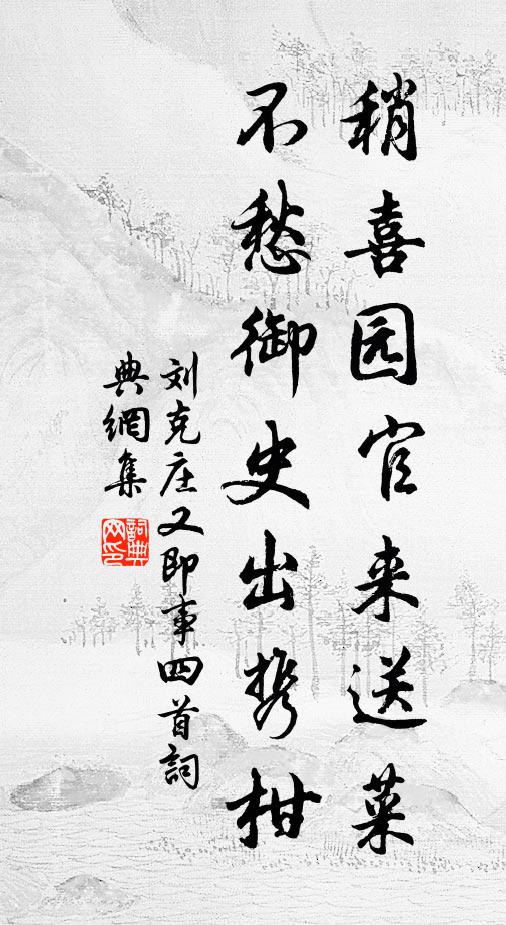 稍喜园官来送菜
不愁御史出携柑
刘克庄又即事四首詞
典網集
詞典
网印